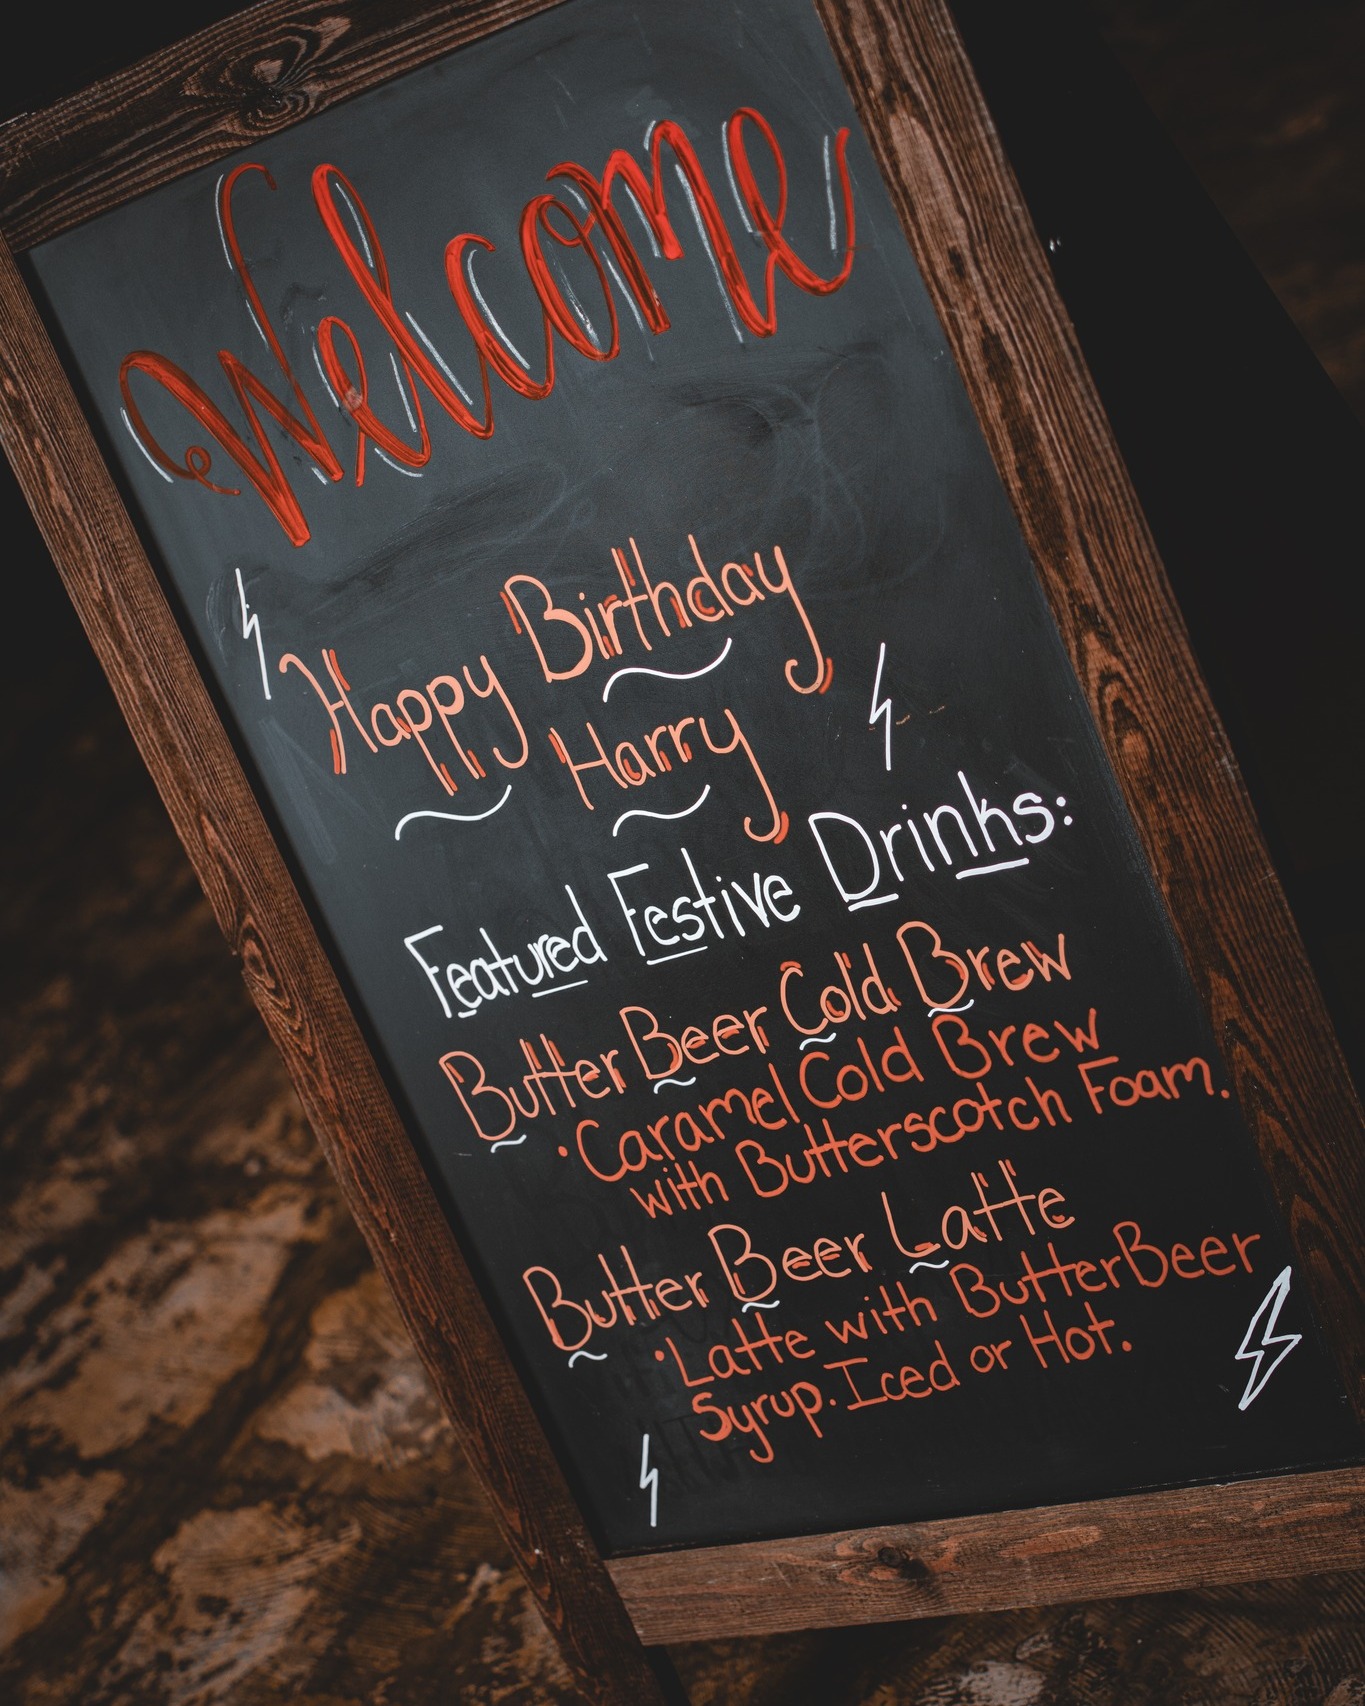 Welcome
Happy Birthday
Harry
Featured Festive Drinks:
Butter Beer Cold Brew
·Caramel Cold Brew
with Butterscotch Foam.
Butter Beer Latte
·Latte with ButterBeer
Syrup. Iced or Hot.